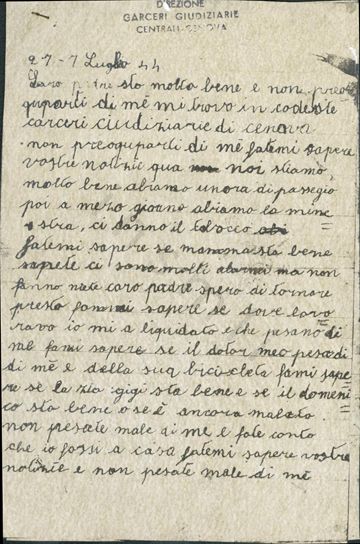 DIREZIONE
CARCERI GIUDIZIARIE
CENTRALI-GENOVA
27-7 Luglio 44
Caro padre sto molto bene e non preo
guparti di mé mi trovo in codeste
carceri ciudiziarie di cenova
non preoguparti di mé fatemi sapere
vostre notizie qua noi stiamo
molto bene abiamo unora di passegio
poi a mezo giorno abiamo la mine
stra, ci danno il tabacco
fatemi sapere se mamma sta bene
sapete ci sono molti alarmi ma non
fanno nate caro padre spero di tornare
presto fammi sapere se dove lavo
ravo io mi a liquidato e che pesano di
mé fami sapere se il dotor meo pesa di
di mé e della sua bricicleta fami sape
re se la zia gigi sta bene e se il domeni
co sta bene o se é ancora malato
non pesate male di me e fate conto
che io fossi a casa fatemi sapere vostre
notizie e non pesate male di mé